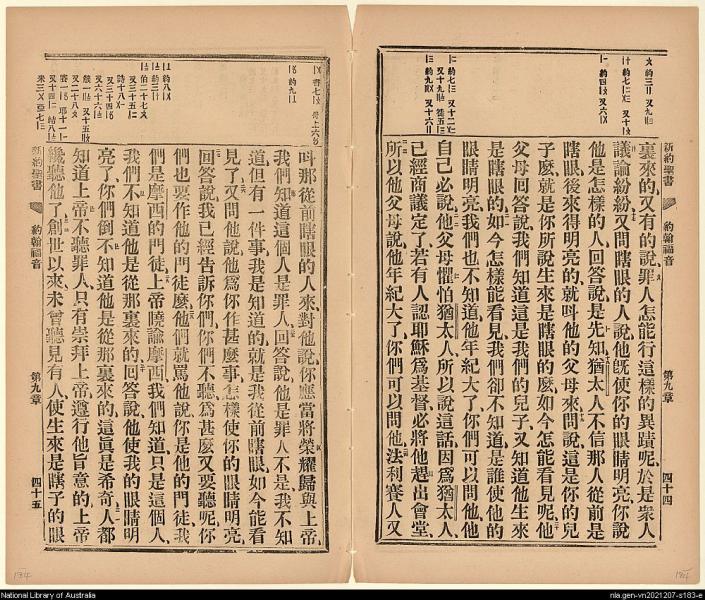 新約聖書
約翰福音
第九章
四十四
裏來的又有的說罪人怎能行這樣的異蹟呢於是衆人
議論紛紛又問瞎眼的人說他旣使你的眼睛明亮你說
他是怎樣的人回答說是先知猶太人不信那人從前是
瞎眼後來得明亮的就呌他的父母來問說這是你的兒
子麼就是你所說生來是瞎眼的麼如今怎能看見呢他
父母回答說我們知道這是我們的兒子又知道他生來
是瞎眼的如今怎樣能看見我們卻不知道是誰使他的
眼睛明亮我們也不知道他年紀大了你們可以問他他
自己必說他父母懼怕猶太人所以說這話因爲猶太人
已經商議定了若有人認耶穌爲基督必將他趕出會堂
所以他父母說他年紀大了你們可以問他法利賽人又
呌那從前瞎眼的人來對他說你應當將榮耀歸與上帝
我們知道這個人是罪人回答說他是罪人不是我不知
道但有一件事我是知道的就是我從前瞎眼如今能看
見了又問他說他爲你作甚麼事怎樣使你的眼睛明亮
回答說我已經告訴你們你們不聽爲甚麼又要聽呢你
們也要作他的門徒麼他們就罵他說你是他的門徒我
們是摩西的門徒上帝曉諭摩西我們知道只是這個人
我們不知道他是從那裏來的回答說他使我的眼睛明
亮了你們倒不知道他是從那裏來的這眞是希奇人都
知道上帝不聽罪人只有崇拜上帝遵行他旨意的上帝
纔聽他了創世以來未曾聽見有人使生來是瞎子的眼
新約聖書
約翰福音
第九章
四十五
National Library of Australia
nla.gen-vn2021207-s183-e